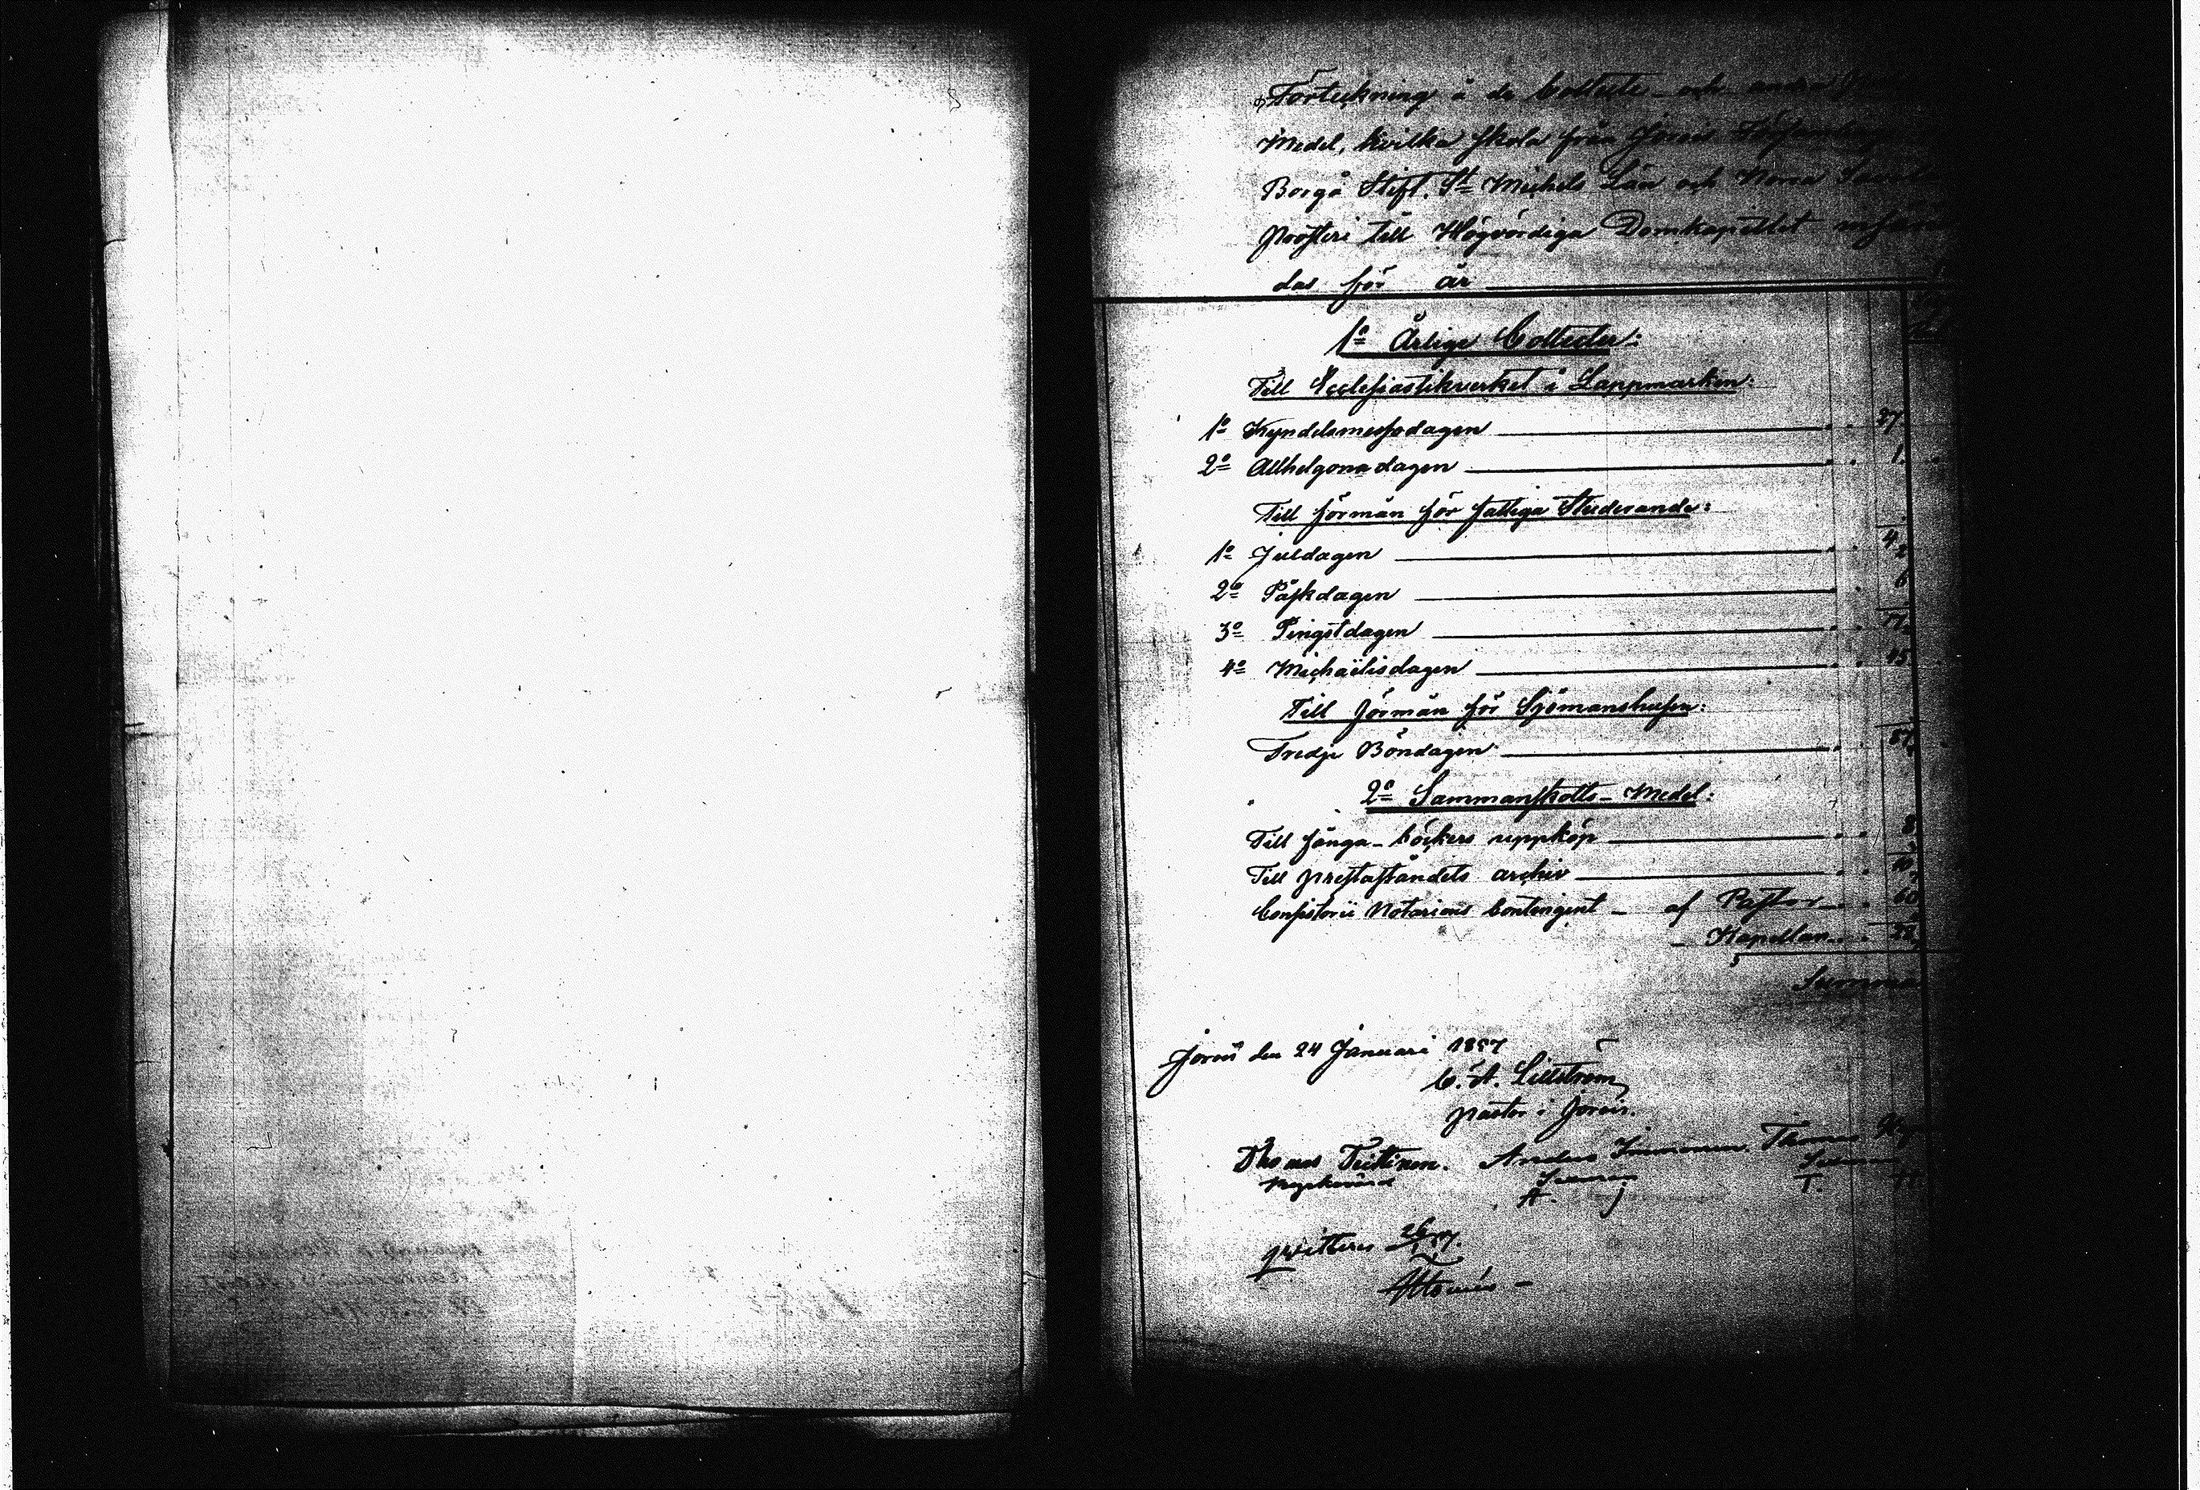 Förteckning å de Collecte- och andra
Medel, hvilka skola från Jorois Församling
Borgå Stift, St Michels Län och Norra
Prosteri till Högvördiga Domkapitlet
das för år
1o Årlige Collecter:
Till Ecclesiastikverket i Lappmarken:
1o Kyndelsmessodagen 27
2o Allhelgonadagen 1
Till förmån för fattiga Studerande:
1o Juldagen
2o Påskdagen 6
3o Pingstdagen
4o Michaëlisdagen 45
Till förmån för Sjömanshusen:
Tredje Böndagen
2o Sammanskotts-Medel:
Till fånga-böckers uppköp 8
Till prestaståndets archiv
Consistorii Notariens Contingent - af Pastor 60
- Kapellan
Summa
Jorois den 24 Januari 1857
C. A. Lillström
pastor i Jorois.
Thomas Teittinen. Anders Immonen. Thomas
A. J T.
qvitteras